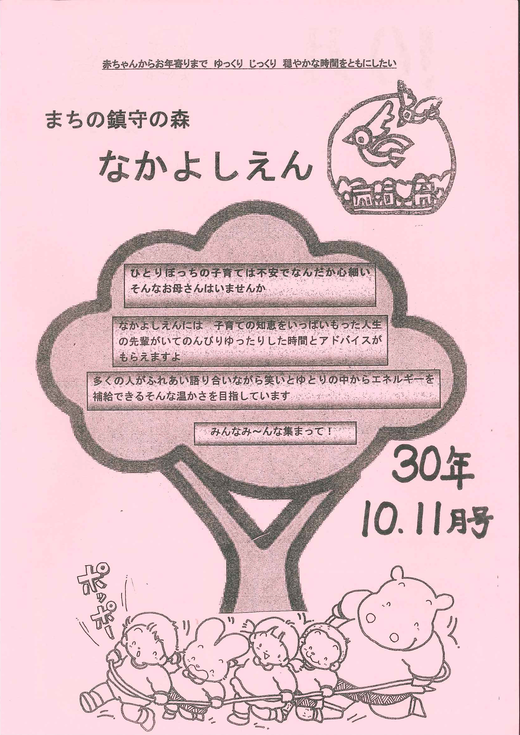 赤ちゃんからお年寄りまで ゆっくり じっくり 穏やかな時間をともにしたい
まちの鎮守の森
なかよしえん
ひとりぼっちの子育ては不安でなんだか心細い
そんなお母さんはいませんか
なかよしえんには 子育ての知恵をいっぱいもった人生
の先輩がいてのんびりゆったりした時間とアドバイスが
もらえますよ
多くの人がふれあい語り合いながら笑いとゆとりの中からエネルギーを
補給できるそんな温かさを目指しています
みんなみ～んな集まって！
30年
10.11月号
ポッポー